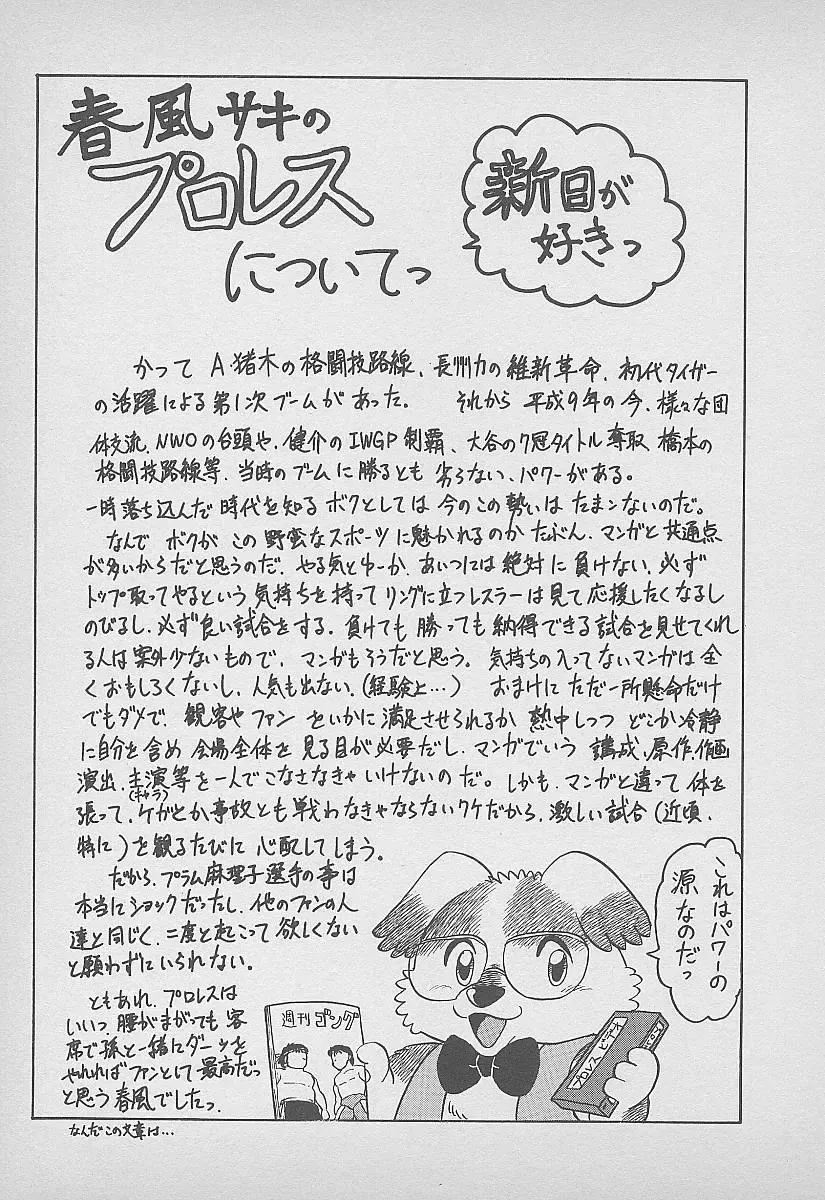 春風サキの
プロレス
についてっ
新日が
好きっ
かって A猪木の格闘技路線、長州力の維新革命、初代タイガー
の活躍による第1次ブームがあった。 それから平成9年の今、様々な団
体交流、NWOの台頭や、健介のIWGP制覇、大谷の7冠タイトル奪取、橋本の
格闘技路線等、当時のブームに勝るとも劣らない、パワーがある。
一時落ち込んだ時代を知るボクとしては今のこの勢いはたまンないのだ。
なんでボクがこの野蛮なスポーツに魅かれるのかたぶん、マンガと共通点
が多いからだと思うのだ。やる気とゆーか、あいつには絶対に負けない、必ず
トップ取ってやるという気持ちを持ってリングに立つレスラーは見て応援したくなるし
のびるし、必ず良い試合をする。負けても勝っても納得できる試合を見せてくれ
る人は案外少ないもので、マンガもそうだと思う。気持ちの入ってないマンガは全
くおもしろくないし、人気も出ない、(経験上…) おまけにただ一所懸命だけ
でもダメで、観客やファンをいかに満足させられるか熱中しつつどこか冷静
に自分を含め会場全体を見る目が必要だし、マンガでいう構成、原作、作画
演出、主演(キャラ)等を一人でこなさなきゃいけないのだ。しかも、マンガと違って体を
張って、ケガとか事故とも戦わなきゃならないワケだから、激しい試合(近頃、
特に)を観るたびに心配してしまう。
だから、プラム麻理子選手の事は
本当にショックだったし、他のファンの人
達と同じく、二度と起こって欲しくない
と願わずにいられない。
ともあれ、プロレスは
いいっ、腰がまがっても客
席で孫と一緒にダーッを
やれればファンとして最高だっ
と思う春風でしたっ
これはパワーの
源なのだっ
週刊ゴング
プロレスビデオ
なんだこの文章は…